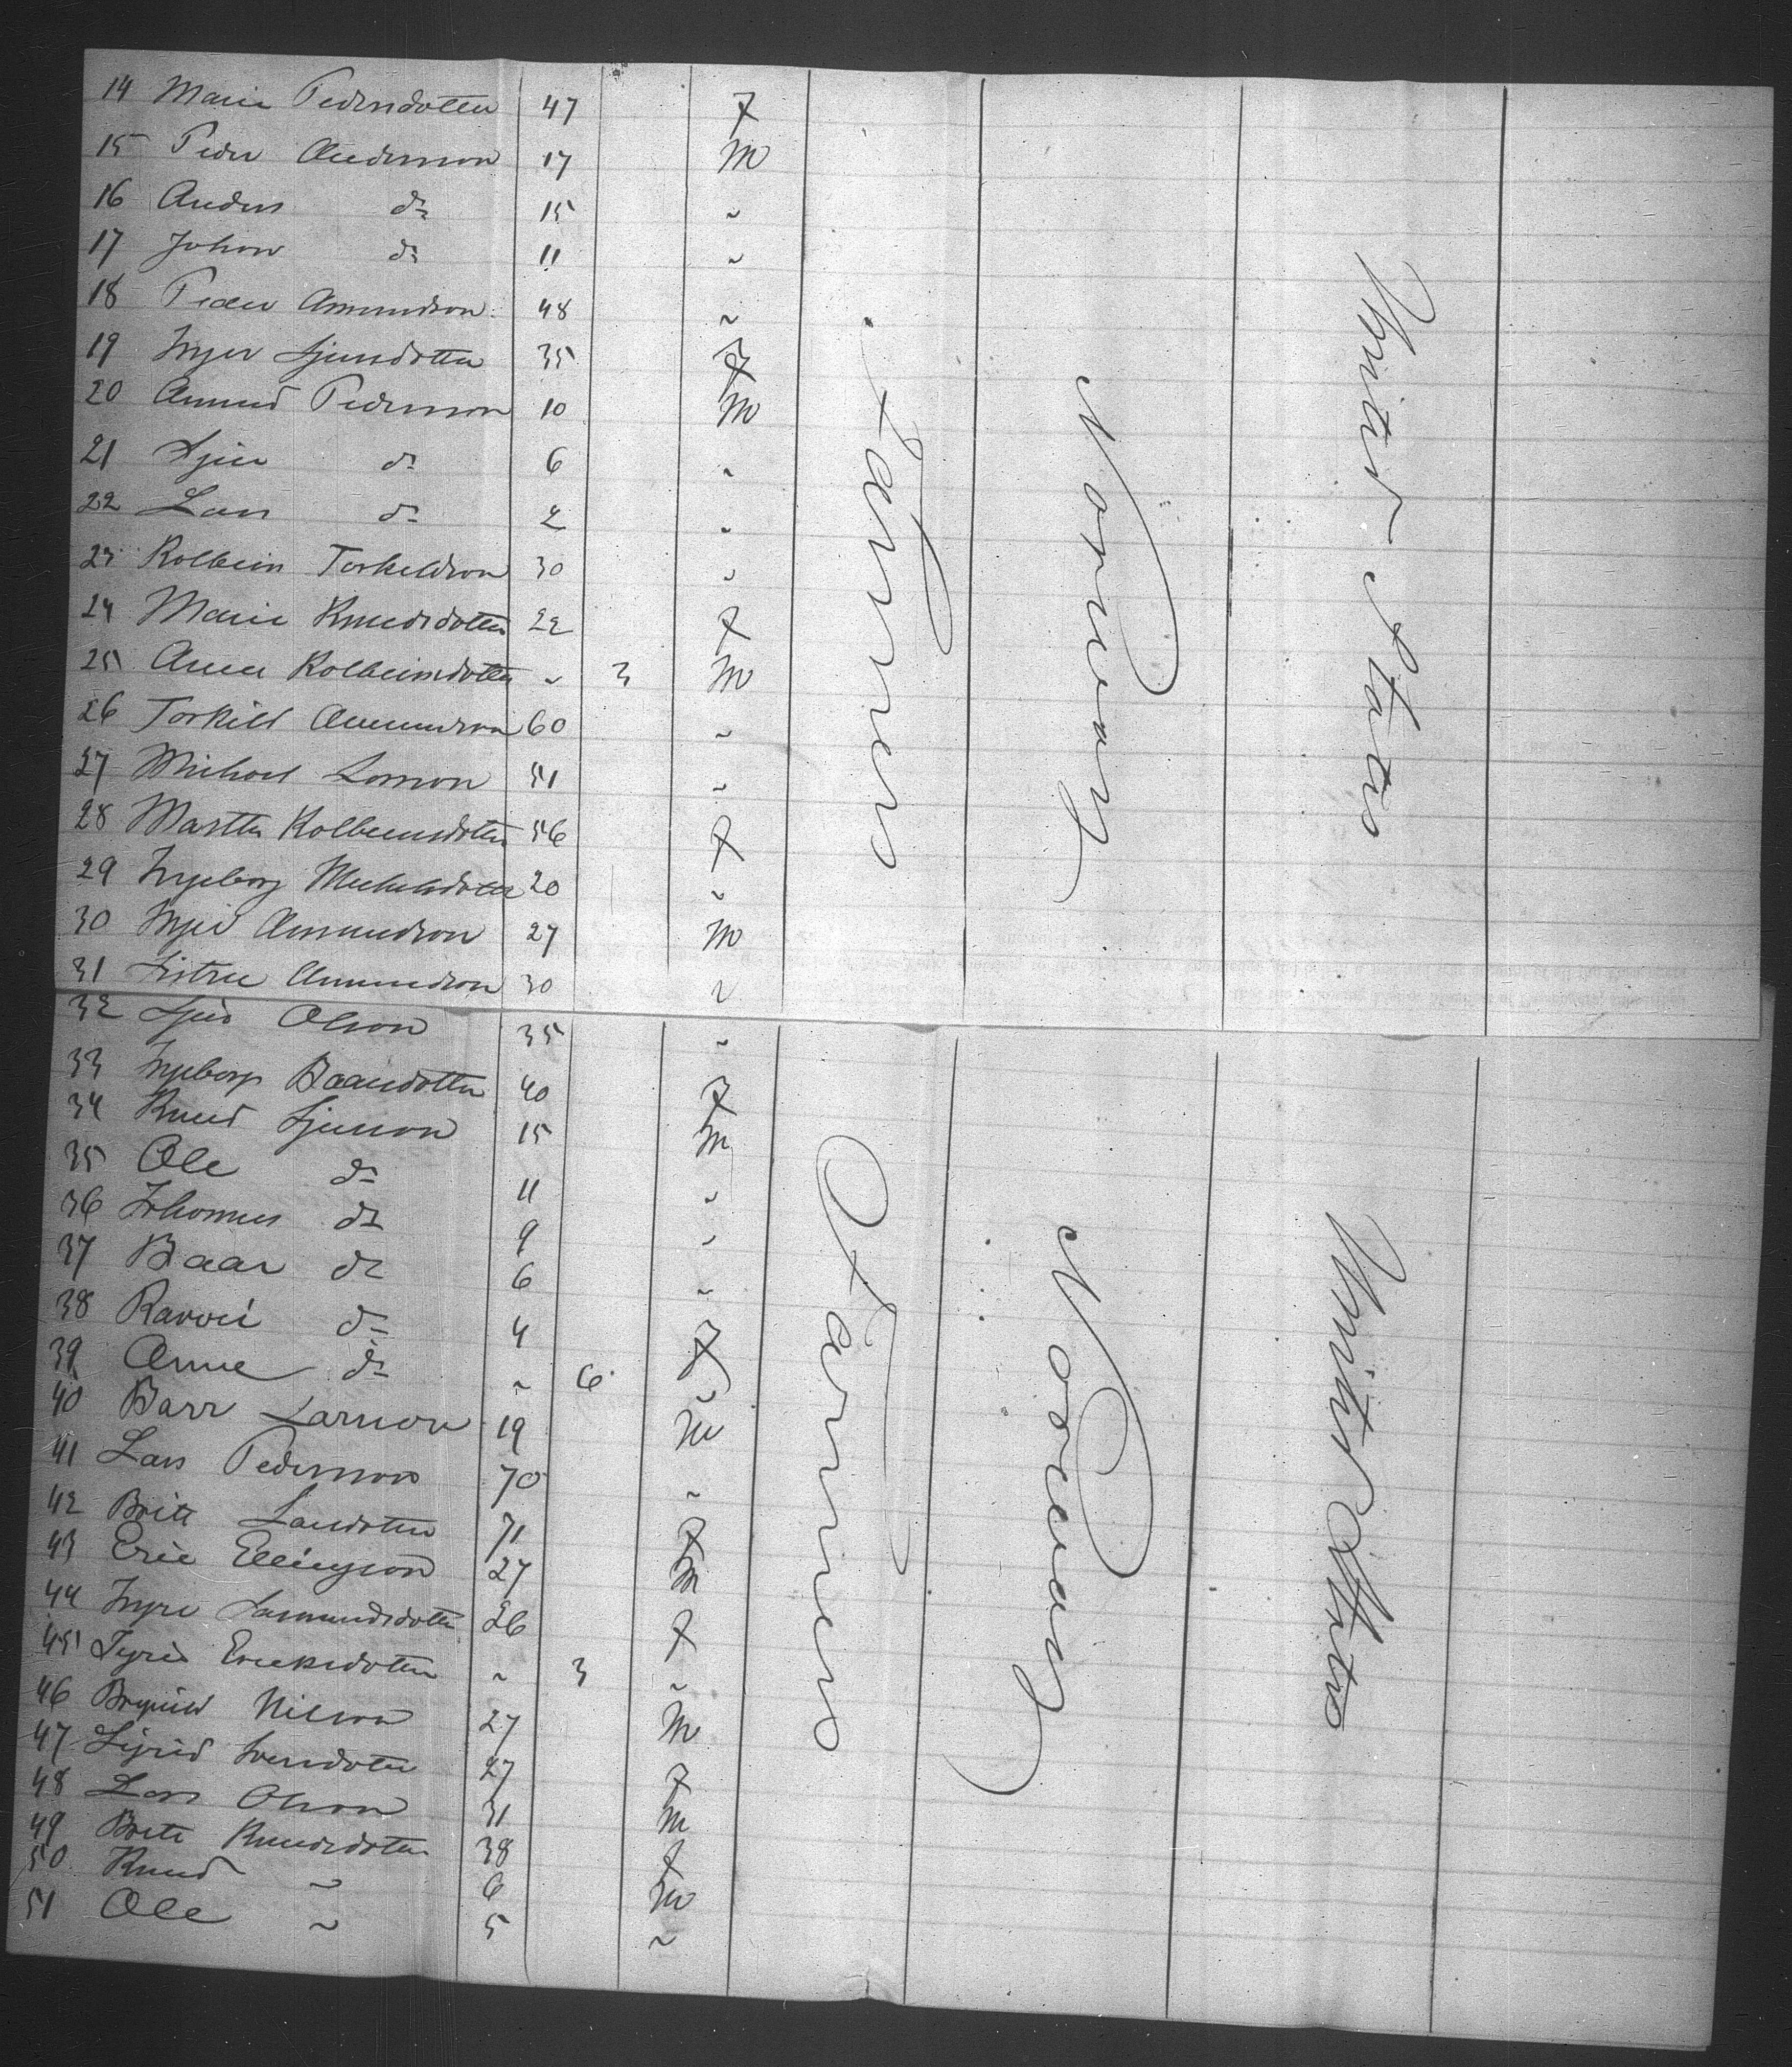 14 Marie Pedersdotter 47 f
15 Peder Anderson 17 m
16 Anders do 15 "
17 Johan do 11 "
18 Peder Amundson 48 "
19 Inger Sjursdotter 35 f
20 Amund Pederson 10 m
21 Sjur do 6 "
22 Lars do 2 "
23 Kolbein Torkeldson 30 "
24 Marie Knudsdotter 22 f
25 Anna Kolbeinsdotter " 3 m
26 Torkild Amundson 60 "
27 Michael Larson 51 "
28 Martha Kolbeinsdotter 56 f
29 Ingeborg Michelsdotter 20 "
30 Amundson 27 m
31 Amundson 30 "
Farmers
Norway
United States
32 Olson 35 "
33 Ingeborg Baarsdotter 40 f
34 Knud Sjurson 15 m
35 Ole do 11 "
36 Johannes do 9 "
37 Baar do 6 "
38 do 4 f
39 Anne do " 6 "
40 Barr Larson 19 m
41 Lars Pederson 70 "
42 Britt Larsdotter 71 f
43 Eric Ellingson 27 m
44 26 f
45 Ericksdotter " 3 "
46 Nilson 27 m
47 Sigrid 27 f
48 Lars Olson 31 m
49 Brite Knudsdotter 38 f
50 Knud " 6 m
51 Ole " 5 "
Farmers
Norway
United States